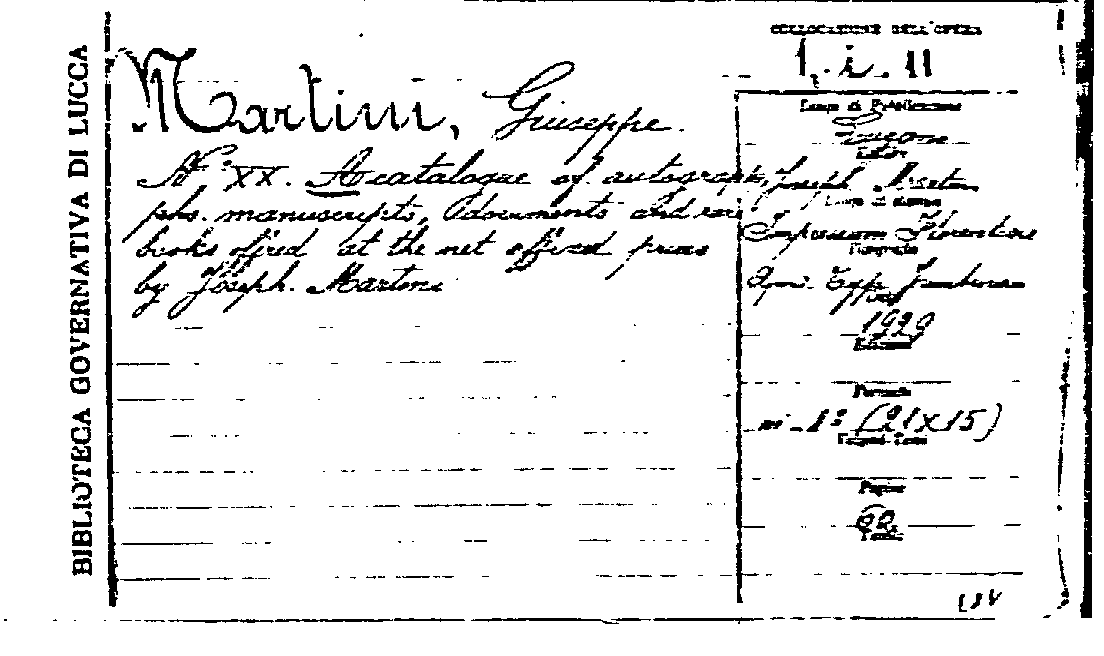 BIBLIOTECA GOVERNATIVA DI LUCCA
COLLOCAZIONE DELL'OPERA
1. i. 11
Martini, Giuseppe.
N° XX. A catalogue of autograph,
phs. manuscripts, documents and rare
books offred at the net affixed prices
by Joseph. Martini
Luogo di Pubblicazione
Lugano
Editore
Joseph Martini
Luogo di stampa
Impressum Florentiae
Tipografia
Typ.
1929
Edizione
Formato
in - 8° (21x15)
Pagine